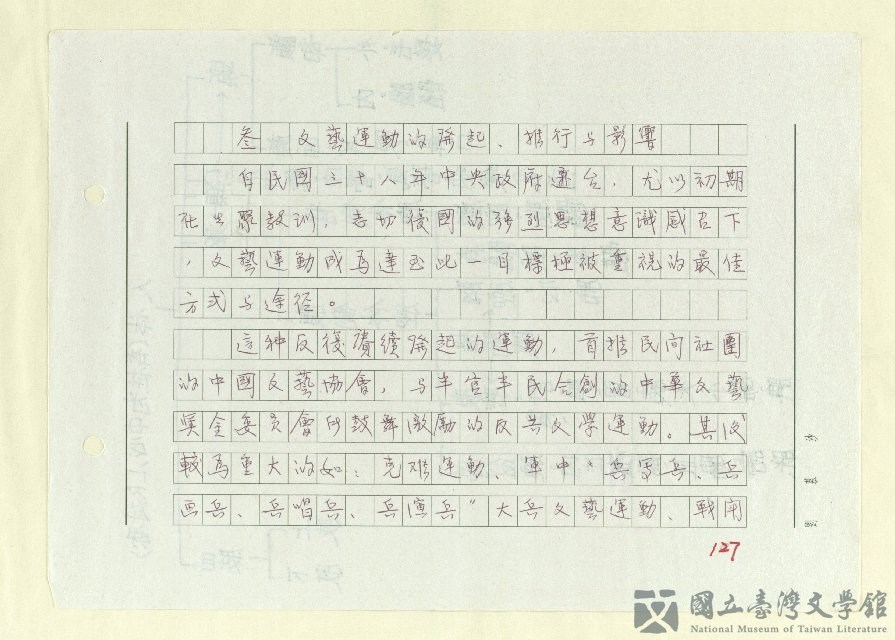 叁 文藝運動的發起、推行与影響
自民國三十八年中央政府遷台，尤以初期
在出聚教訓，志切復國的強烈思想意識感召下
，文藝運動成為達至此一目標極被重視的最佳
方式与途径。
這种反復賡續發起的運動，首推民间社團
的中國文藝協會，与半官半民合創的中華文藝
獎金委員會所鼓舞激励的反共文學運動。其次
較為重大的如：克难運動、軍中“兵写兵、兵
画兵、兵唱兵、兵演兵”大兵文藝運動、戰鬥
127
國立臺灣文學館
National Museum of Taiwan Literature